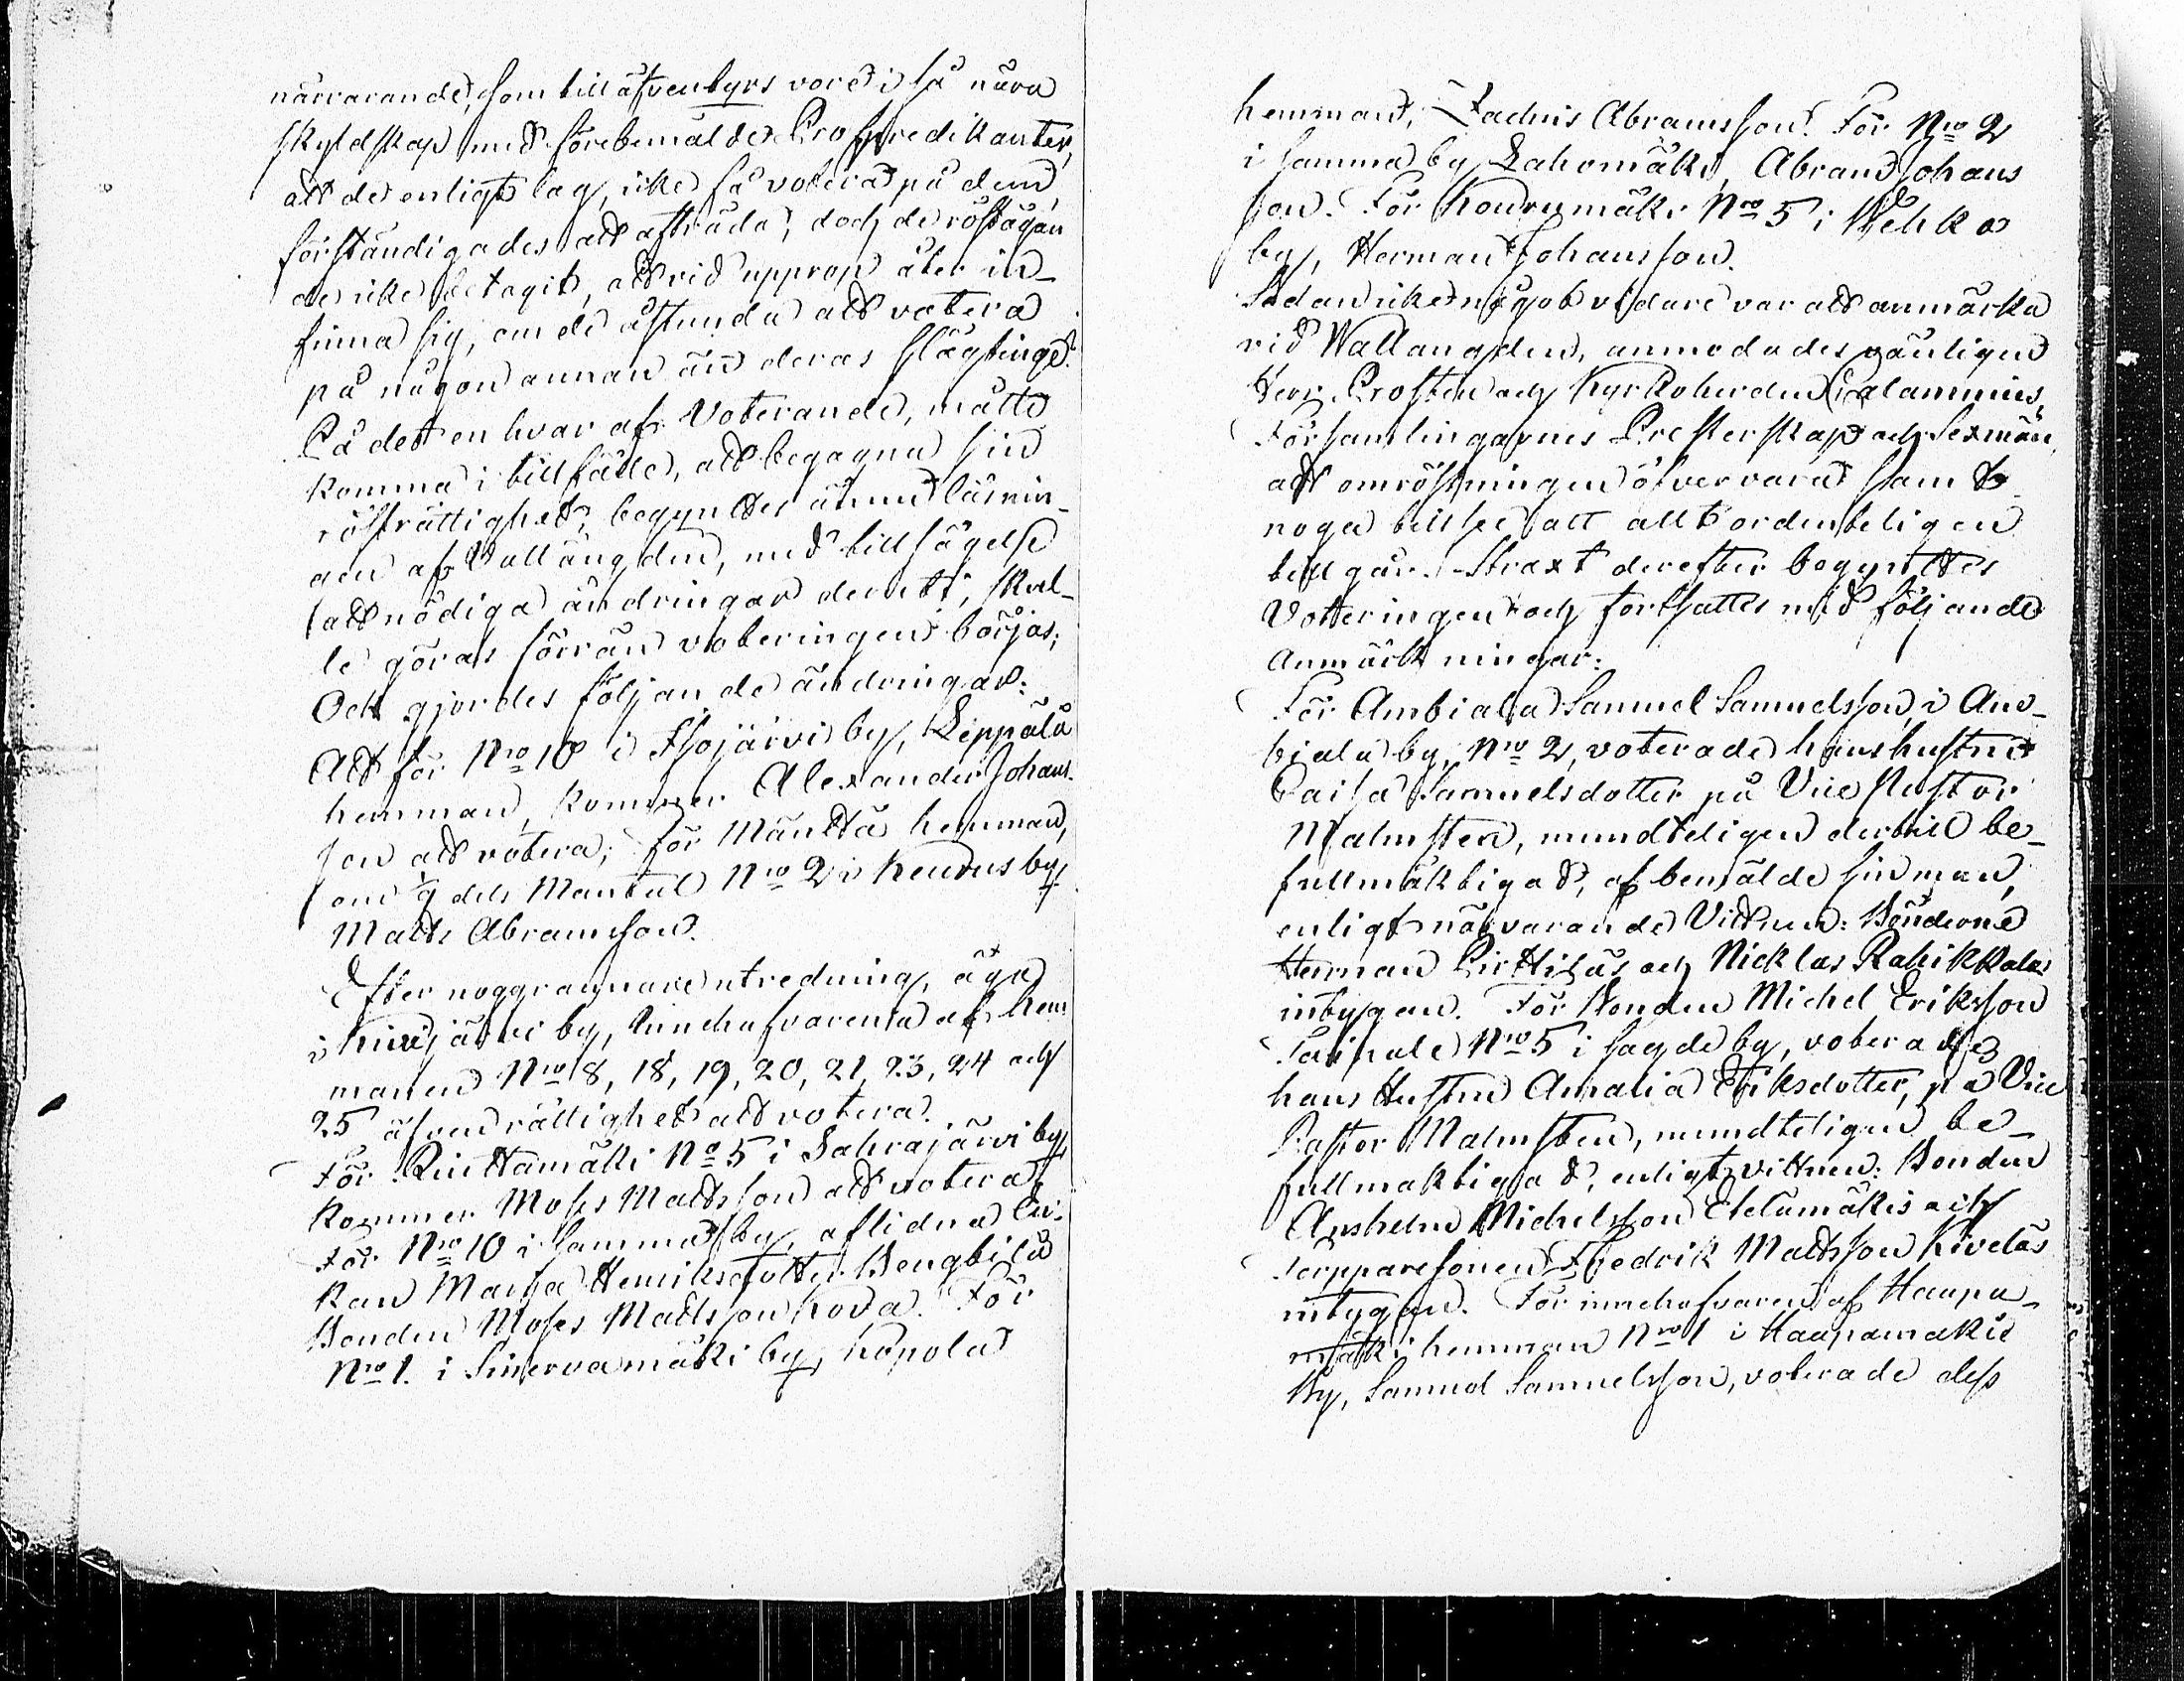 närvarande, som till äfventyrs vore i så nära
skyldskap med förebemälde Profpredikanter,
att de enligt lag, icke få votera på dem,
förständigades att afträda; doch de röstägan
de icke betagit, att vid upprop åter in-
finna sig, om de åstunda att votera
på någon annan än deras slägtinge.
På det en hvar af Voterande, måtte
komma i tillfälle, att begagna sin
rösträttighet, begyntes ännu läsnin-
gen af Vallängden, med tillsägelse
att nödiga ändringar deruti, skul-
le göras förrän voteringen börjas;
Och gjordes följande ändringar:
Att för Nro 10 i Ilojärvi by, Leppälä
hemman, kommer Alexander Johans-
son att votera; för Mänttä hemman,
om 1/9 dels Mantal Nro 2 i Keurus by
Matts Abramsson.
Efter noggrannare utredning, äga
i Kivijärvi by, innehafvarena af hem
manen Nro 8, 18, 19, 20, 21, 23, 24 och
25 äfven rättighet att votera.
För Riuttamäki No 5 i Sahrajärvi by,
kommer Moses Mattsson att votera,
För Nro 10 i samma by, aflidna En-
kan Maija Henriksdotter Bengtilä
Bonden Moses Mattsson Kova. För
Nro 1. i Sinervämäki by, Kopola
hemman, Zachris Abramsson. För Nro 2
i samma by Lahomäki, Abram Johans
son. För Kourumäki Nro 5 i Wehka
by, Herman Johansson.
Sedan icke något vidare var att anmärka
vid Wallängden, anmodades gäuligen
Herr Prosten och Kyrkoherden Calamnius,
Församlingarnes Presterskap och Sexmän,
att omröstningen öfvervara samt
noga tillse att allt ordenteligen
tillgår. Straxt derefter begyntes
Voteringen och fortsattes med följande
anmärkningar:
För Ambiala Samuel Samuelsson, i Am-
biala by, Nro 2, voterade hans hustru
Caisa Samuelsdotter på Vice Pastor
Malmsten, mundteligen dertill be-
fullmäktigad, af bemälde sin man,
enligt närvarande Vittnen: Bönderne
Herman Pirttiläs och Nicklas Rahikkalas
intygan. För Bonden Michel Eriksson
Taipale Nro 5 i sagde by, voterade
hans Hustru Amalia Eriksdotter, på Vice
Pastor Malmsten, mundteligen be-
fullmaktigad, enligt vittnen: Bonden
Anshelm Michelsson Etelämäkis och
Torpparesonen Fredrik Mattsson Kiveläs
intygan. För innehafvaren af Haapa-
mäki hemman Nro 1 i Haapamäki
By, Samuel Samuelsson, voterade dess